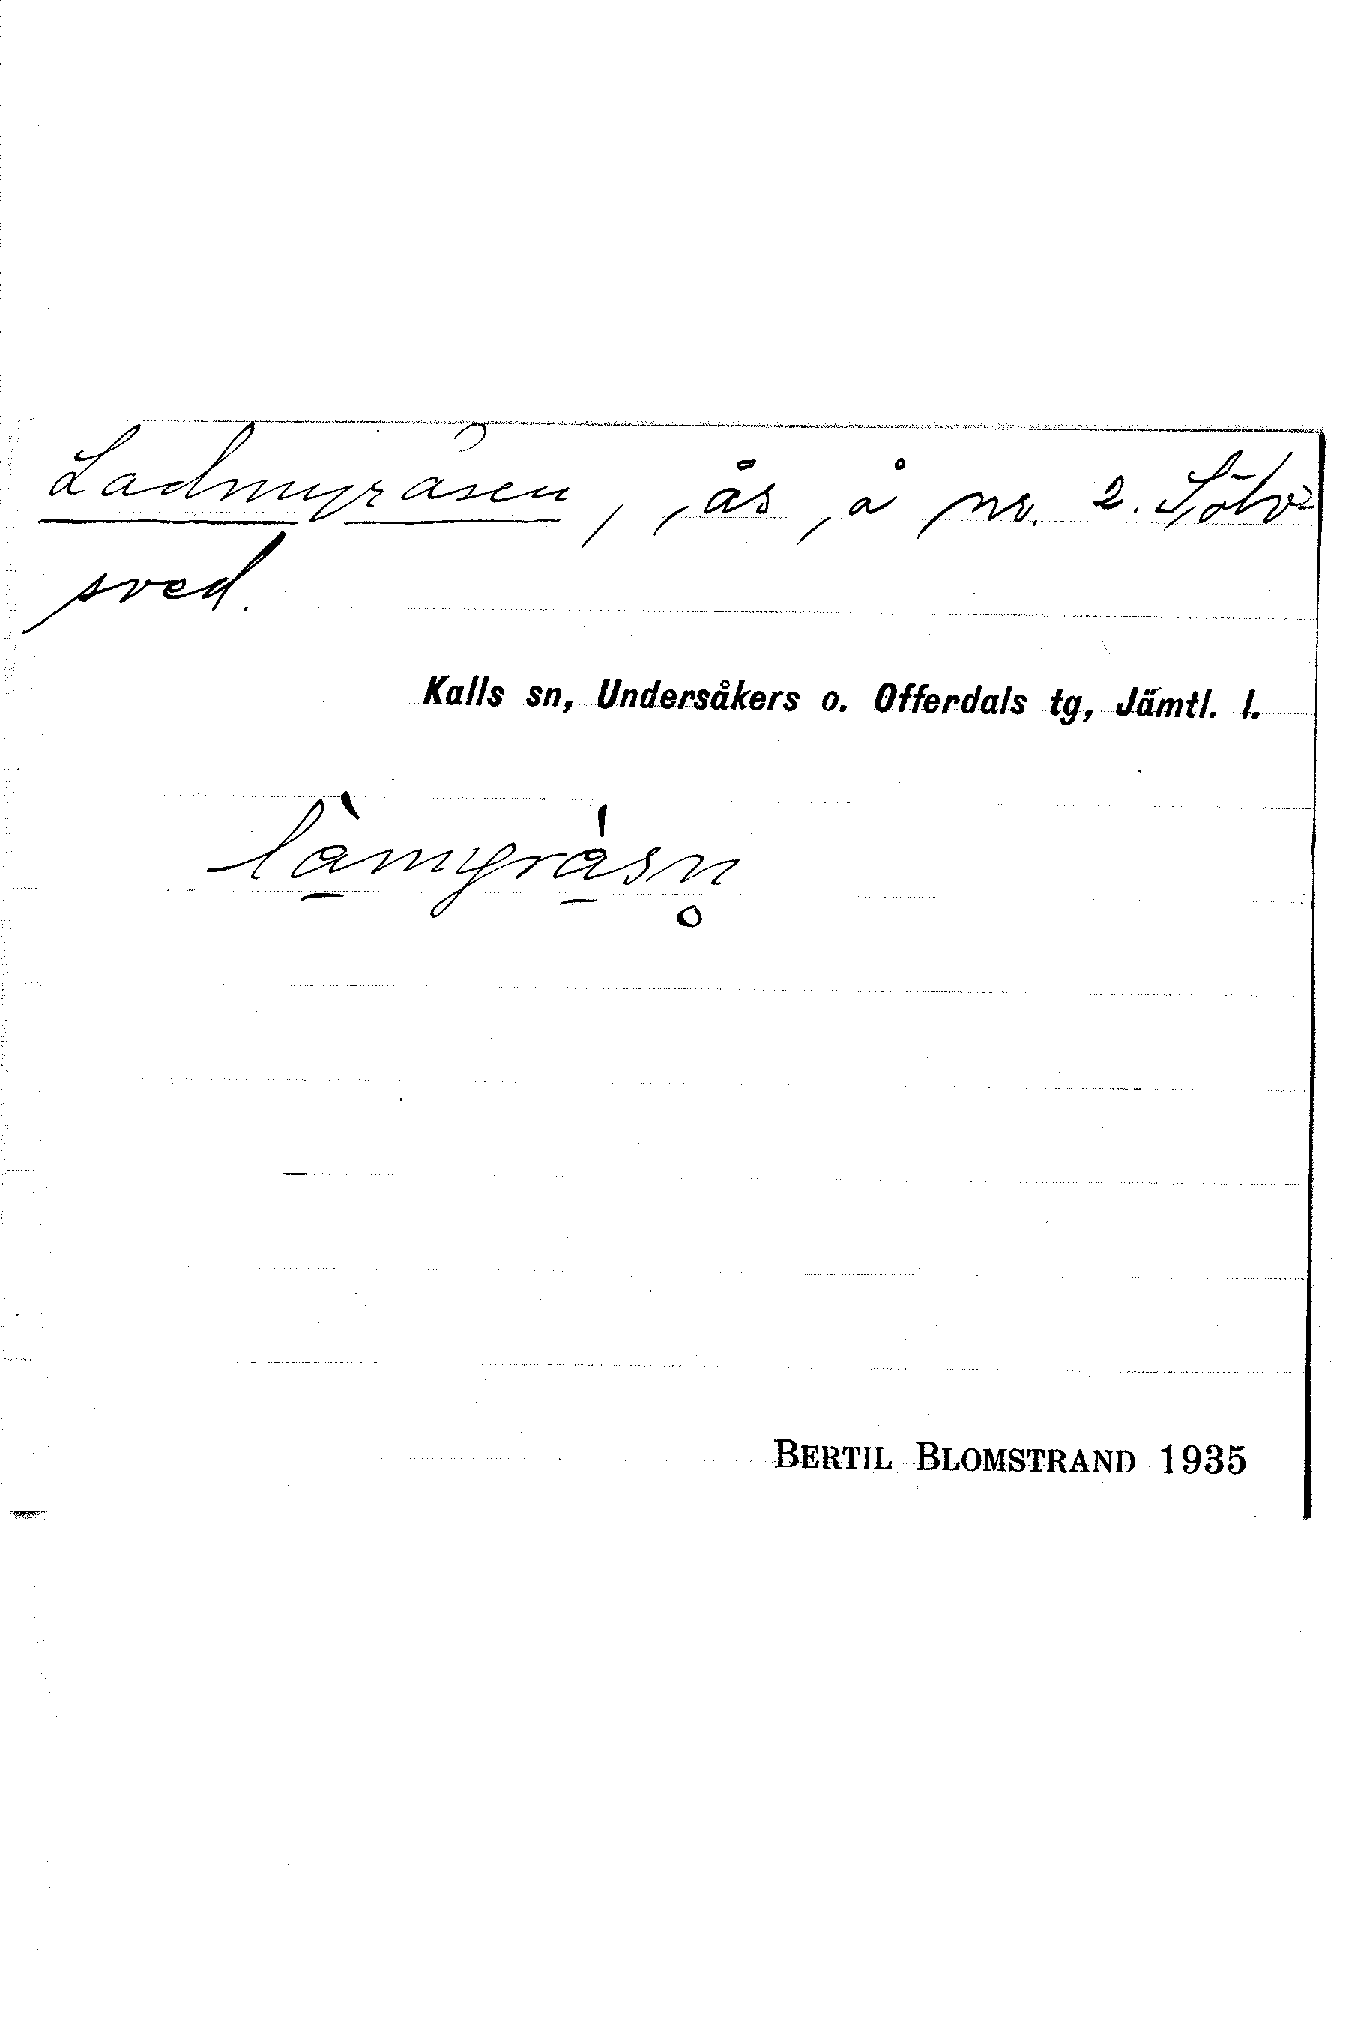 Ladmyråsen, ås å nr. 2. Sölv-
sved.
Kalls sn, Undersåkers o. Offerdals tg, Jämtl. l.
là̱myrå̱sn̥
BERTIL BLOMSTRAND 1935